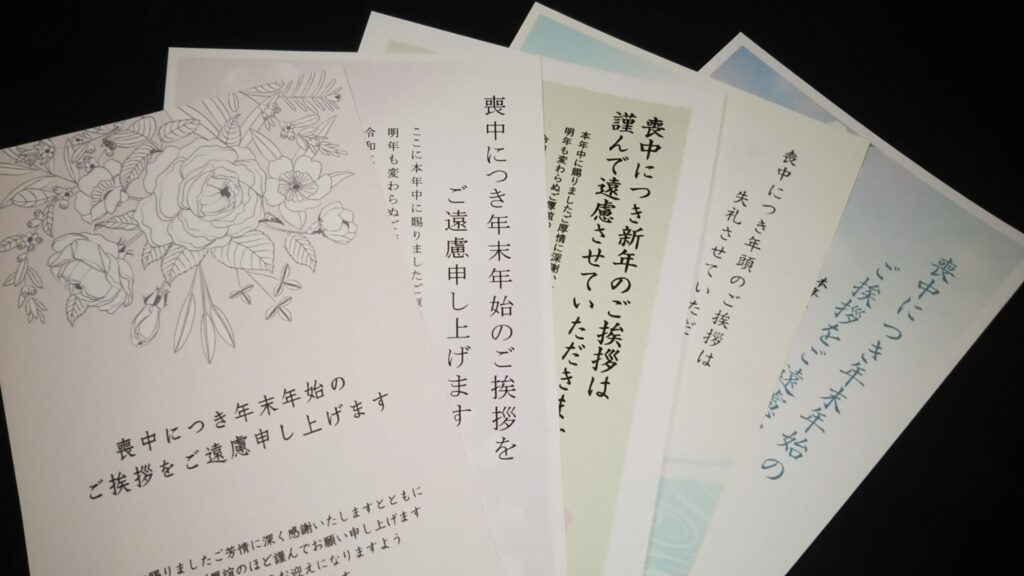 喪中につき年末年始の
ご挨拶をご遠慮申し上げます
賜りましたご芳情に深く感謝いたしますとともに
のほど謹んでお願い申し上げます
お迎えになりますよう
喪中につき年末年始のご挨拶を
ご遠慮申し上げます
ここに本年中に賜りましたご
明年も変わらぬご
令和
喪中につき新年のご挨拶は
謹んで遠慮させていただきま
本年中に賜りましたご厚情に深謝
明年も変わらぬご厚誼の
喪中につき年頭のご挨拶は
失礼させていただ
喪中につき年末年始の
ご挨拶をご遠慮
本年